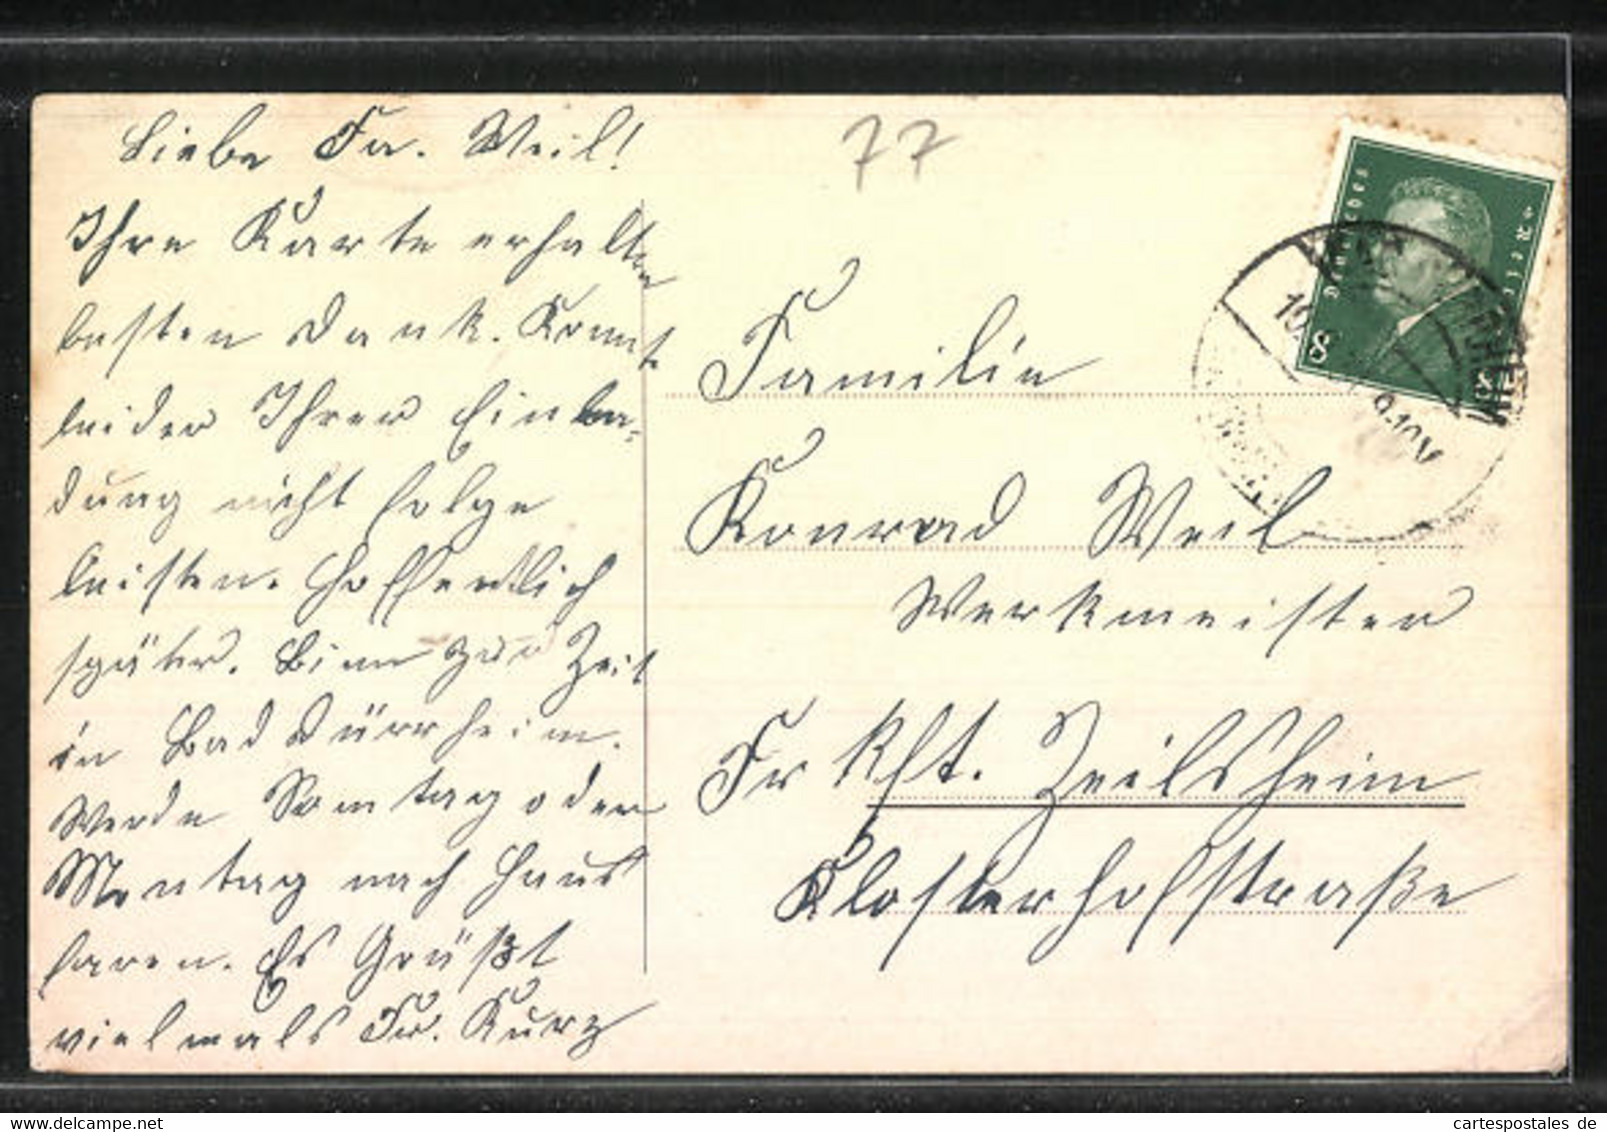 Liebe Fa. Weil!
Ihre Karte erhalten
besten Dank. Konnte
leider Ihrer Einla-
dung nicht folge
leisten. Hoffendlich
später. Bin zur Zeit
in Bad Dürrheim.
Werde Sonntag oder
Montag nach Haus
faren. Es Grüßt
vielmals Fr. Kurz
77
Deutsches Reich
8 8
Familie
Konrad Weil
Werkmeister
Frkft. Zeilsheim
Klosterhofstraße
cartespostales de